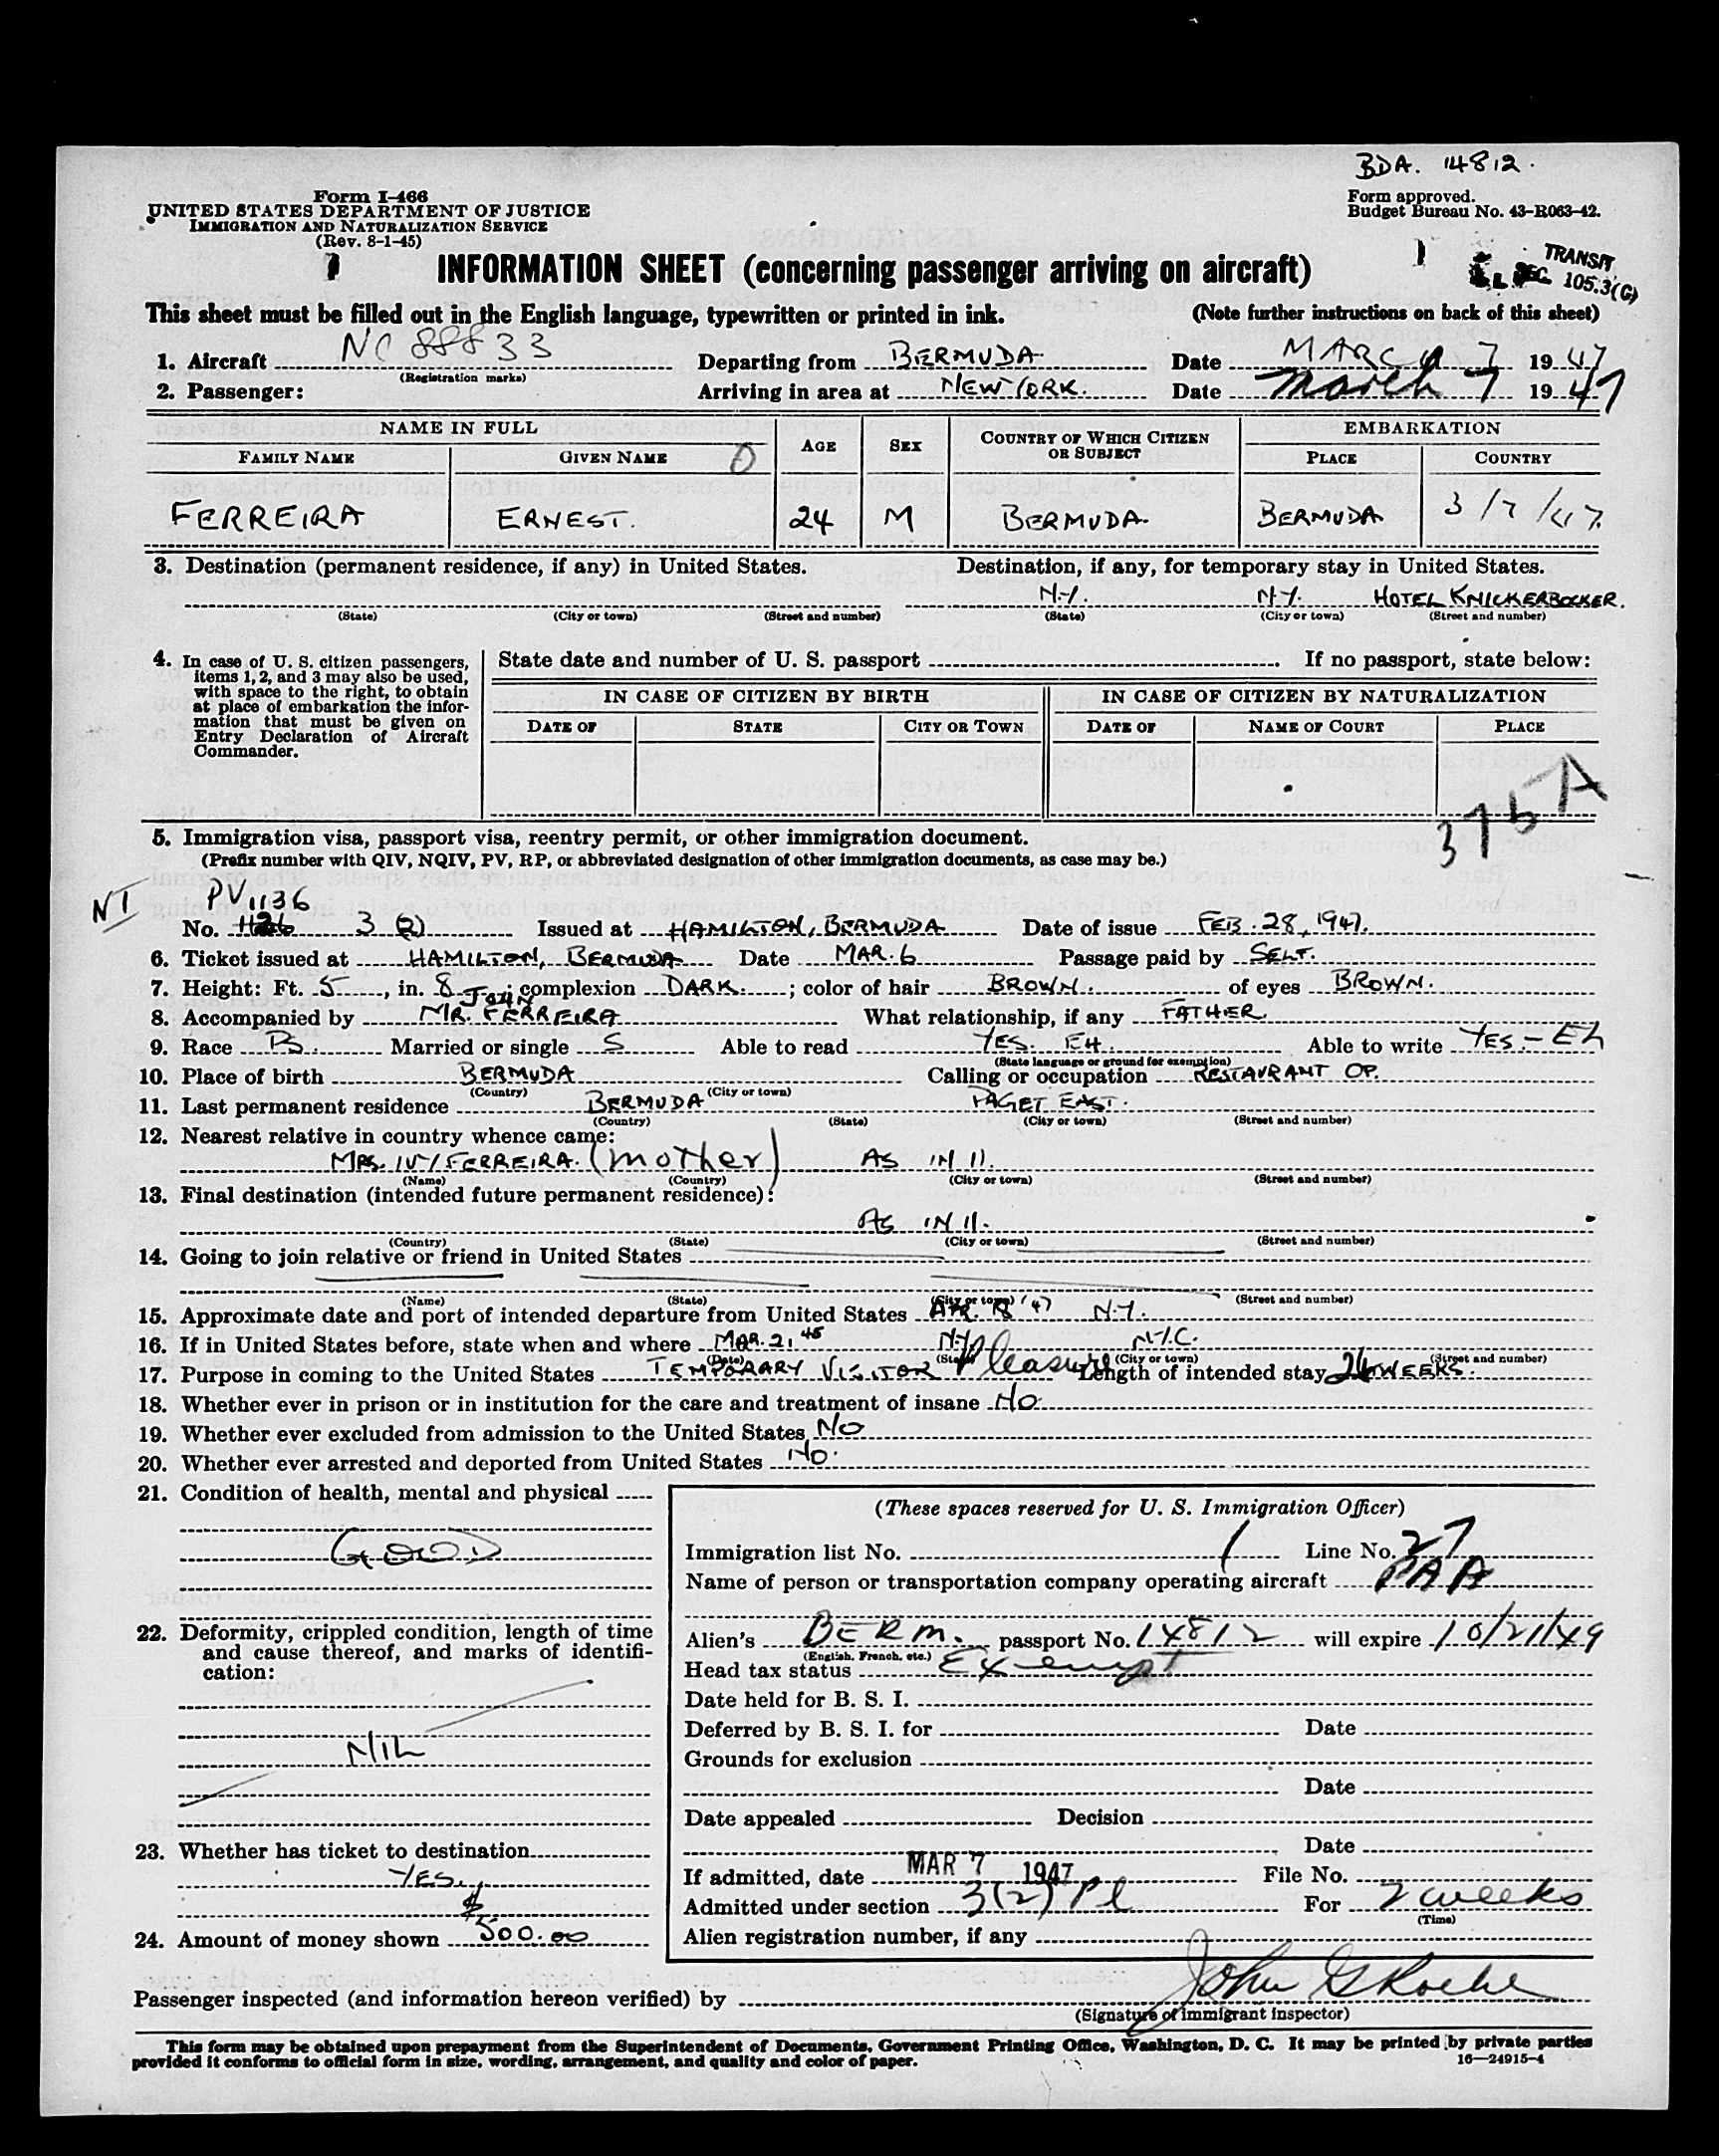 BDA. 14812.
Form I-466
UNITED STATES DEPARTMENT OF JUSTICE
IMMIGRATION AND NATURALIZATION SERVICE
(Rev. 8-1-45)
Form approved.
Budget Bureau No. 43-R063-42.
INFORMATION SHEET (concerning passenger arriving on aircraft)
TRANSIT
SEC. 105.3(G)
This sheet must be filled out in the English language, typewritten or printed in ink. (Note further instructions on back of this sheet)
1. Aircraft NC 88833 Departing from BERMUDA Date MARCH 7 1947
(Registration marks)
2. Passenger: Arriving in area at NEW YORK. Date March 7 1947
NAME IN FULL AGE SEX COUNTRY OF WHICH CITIZEN OR SUBJECT EMBARKATION
FAMILY NAME GIVEN NAME PLACE COUNTRY
FERREIRA ERNEST. 24 M BERMUDA. BERMUDA 3/7/47.
3. Destination (permanent residence, if any) in United States. Destination, if any, for temporary stay in United States.
N.Y. N.Y. HOTEL KNICKERBOCKER.
(State) (City or town) (Street and number) (State) (City or town) (Street and number)
4. In case of U. S. citizen passengers, items 1, 2, and 3 may also be used, with space to the right, to obtain at place of embarkation the information that must be given on Entry Declaration of Aircraft Commander.
State date and number of U. S. passport If no passport, state below:
IN CASE OF CITIZEN BY BIRTH IN CASE OF CITIZEN BY NATURALIZATION
DATE OF STATE CITY OR TOWN DATE OF NAME OF COURT PLACE
5. Immigration visa, passport visa, reentry permit, or other immigration document.
(Prefix number with QIV, NQIV, PV, RP, or abbreviated designation of other immigration documents, as case may be.)
NI PV 1136
No. 3 (2) Issued at HAMILTON, BERMUDA Date of issue FEB. 28, 1947.
6. Ticket issued at HAMILTON, BERMUDA Date MAR. 6 Passage paid by SELF.
7. Height: Ft. 5, in. 8; complexion DARK.; color of hair BROWN. of eyes BROWN.
8. Accompanied by MR. JOHN FERREIRA What relationship, if any FATHER.
9. Race Married or single S Able to read YES. EH. Able to write YES. - Eh
(State language or ground for exemption)
10. Place of birth BERMUDA Calling or occupation RESTAURANT OP.
(Country) (City or town)
11. Last permanent residence BERMUDA PAGET EAST.
(Country) (State) (City or town) (Street and number)
12. Nearest relative in country whence came:
MRS. IVY FERREIRA. (mother) AS IN 11.
(Name) (Country) (City or town) (Street and number)
13. Final destination (intended future permanent residence):
AS IN 11.
(Country) (State) (City or town) (Street and number)
14. Going to join relative or friend in United States
(Name) (State) (City or town) (Street and number)
15. Approximate date and port of intended departure from United States APR. '47 N.Y.
16. If in United States before, state when and where MAR. 21, 45 N.Y. N.Y.C.
(Date) (State) (City or town) (Street and number)
17. Purpose in coming to the United States TEMPORARY VISITOR Pleasure Length of intended stay WEEKS.
18. Whether ever in prison or in institution for the care and treatment of insane NO.
19. Whether ever excluded from admission to the United States NO
20. Whether ever arrested and deported from United States NO.
21. Condition of health, mental and physical
GOOD
22. Deformity, crippled condition, length of time and cause thereof, and marks of identification:
NIL
23. Whether has ticket to destination
YES.
24. Amount of money shown $500.00
(These spaces reserved for U. S. Immigration Officer)
Immigration list No. 1 Line No. 27
Name of person or transportation company operating aircraft PAA
Alien's BERM. passport No. 14812 will expire 10/21/49
(English, French, etc.)
Head tax status Exempt
Date held for B. S. I.
Deferred by B. S. I. for Date
Grounds for exclusion
Date
Date appealed Decision
Date
If admitted, date MAR 7 1947 File No.
Admitted under section 3(2) Pl For 2 weeks
(Time)
Alien registration number, if any
Passenger inspected (and information hereon verified) by John G Roche
(Signature of immigrant inspector)
This form may be obtained upon prepayment from the Superintendent of Documents, Government Printing Office, Washington, D. C. It may be printed by private parties
provided it conforms to official form in size, wording, arrangement, and quality and color of paper. 16—24915-4